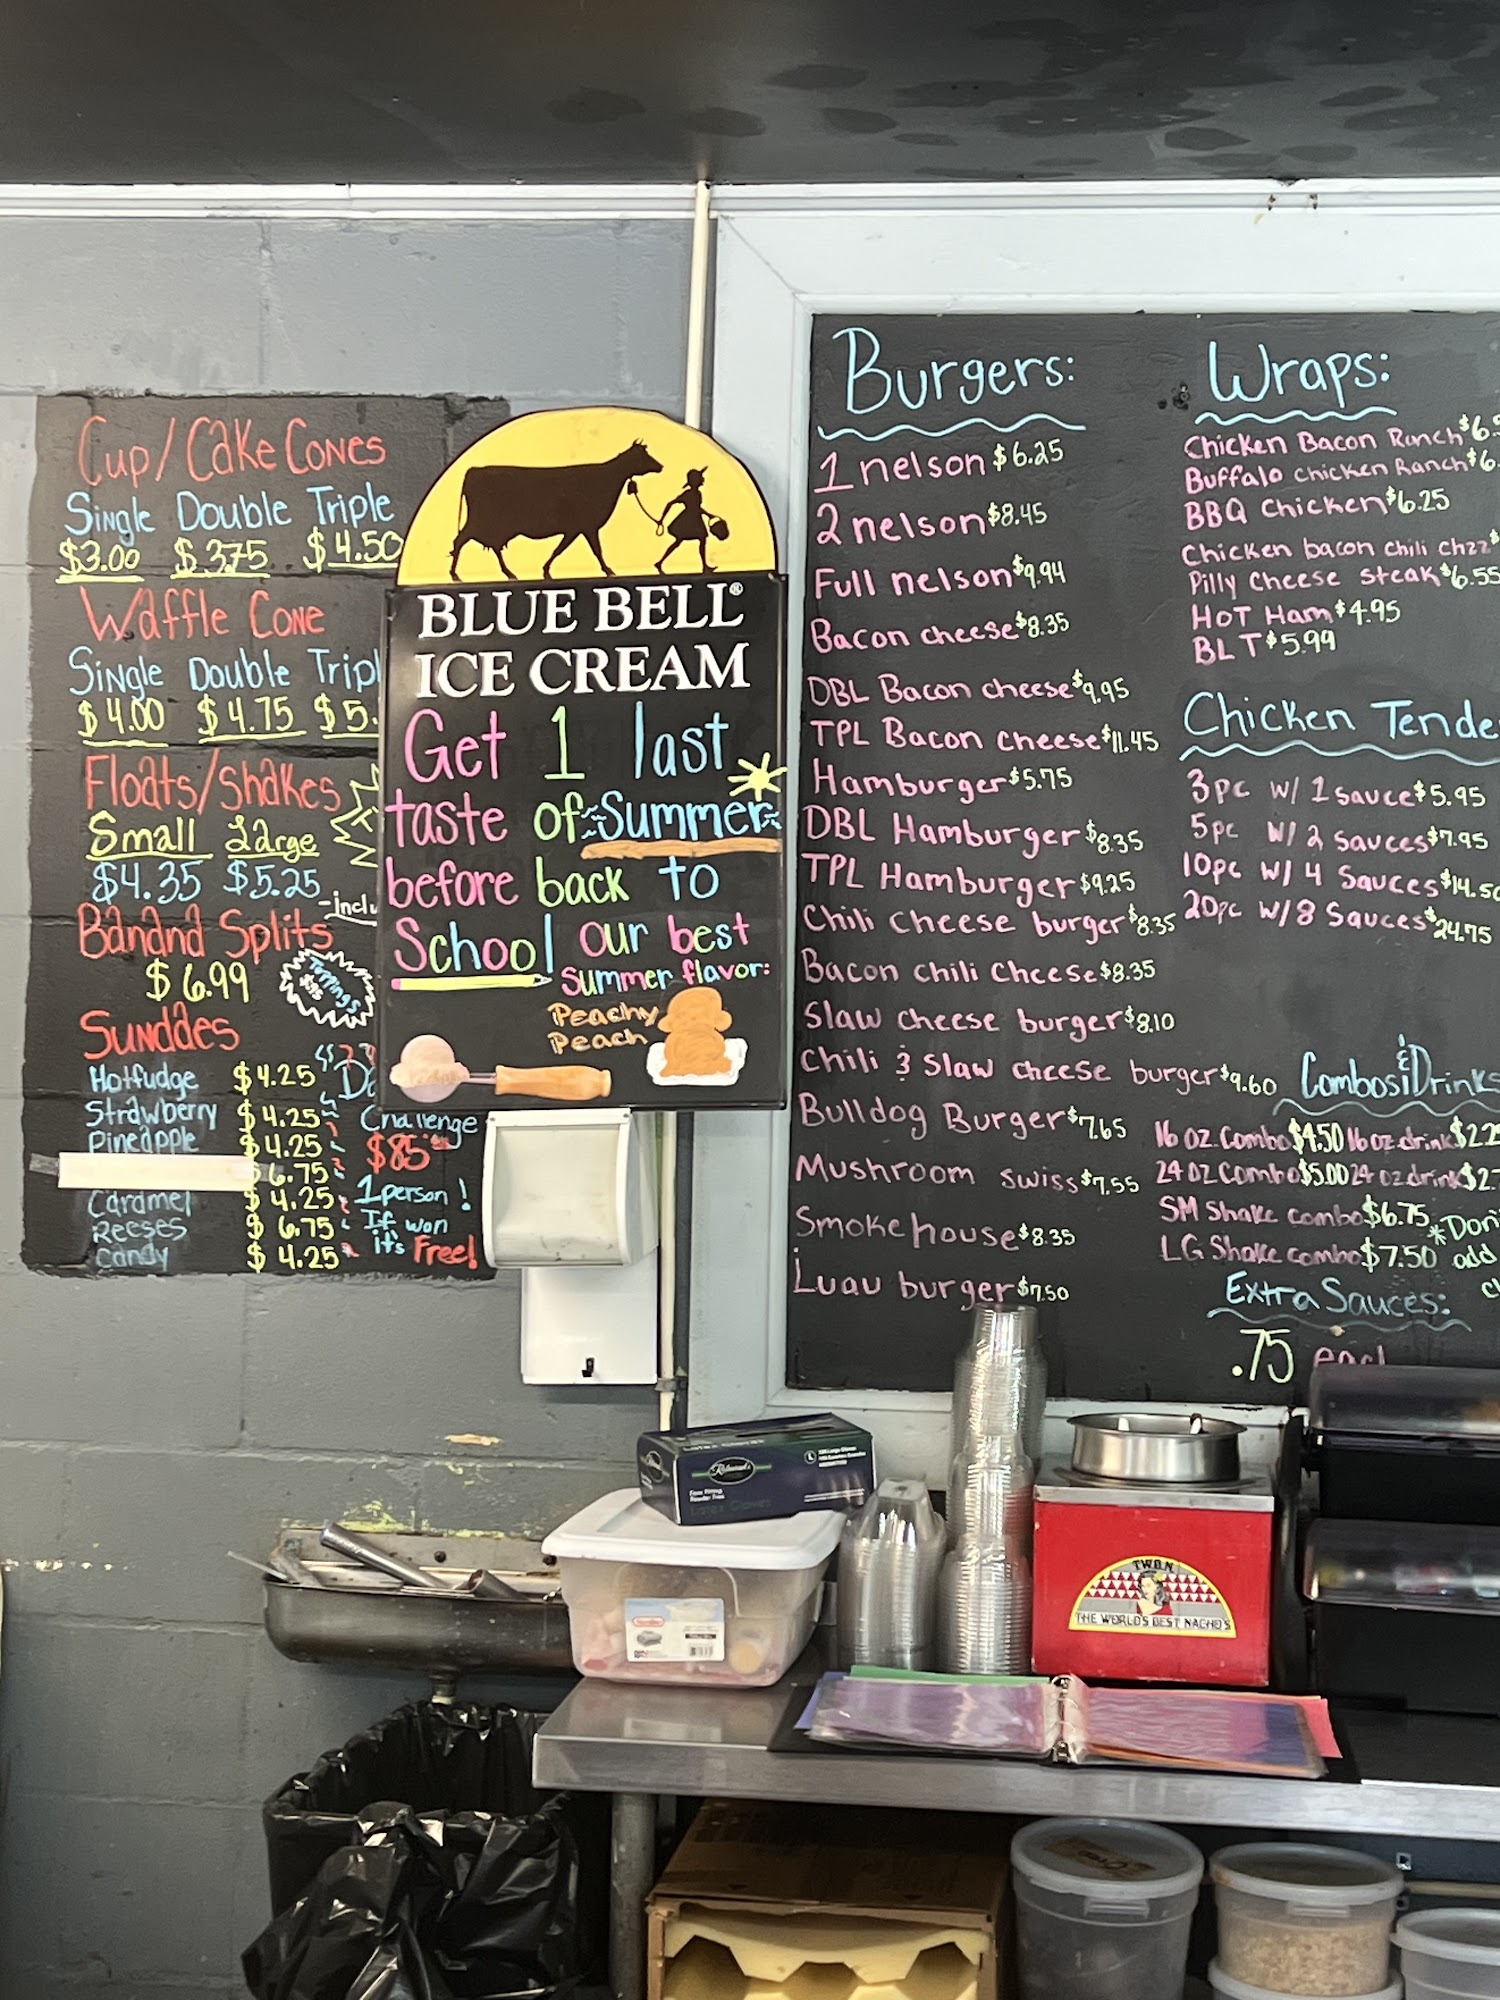 Cup/Cake Cones
Single Double Triple
$3.00 $3.75 $4.50
Waffle Cone
Single Double Tripl
$4.00 $4.75 $5.
Floats/Shakes
Small Large
$4.35 $5.25
-Inclu
Banana Splits
$6.99
Toppings
Sundaes
Hotfudge $4.25
Strawberry $4.25
Pineapple $4.25
$6.75
Caramel $4.25
Reeses $6.75
Candy $4.25
Challenge
$85
1 person!
If won
it's Free!
BLUE BELL®
ICE CREAM
Get 1 last
taste of Summer
before back to
School our best
Summer flavor:
Peachy
Peach
Burgers:
1 nelson $6.25
2 nelson $8.45
Full nelson $9.94
Bacon cheese $8.35
DBL Bacon cheese $9.95
TPL Bacon cheese $11.45
Hamburger $5.75
DBL Hamburger $8.35
TPL Hamburger $9.25
Chili cheese burger $8.35
Bacon chili cheese $8.35
Slaw cheese burger $8.10
Chili & Slaw cheese burger $9.60
Bulldog Burger $7.65
Mushroom swiss $7.55
Smokehouse $8.35
Luau burger $7.50
Wraps:
Chicken Bacon Ranch $6.5
Buffalo chicken Ranch $6.
BBQ Chicken $6.25
Chicken bacon chili chzz $
Pilly cheese steak $6.55
HOT Ham $4.95
BLT $5.99
Chicken Tende
3pc w/ 1 sauce $5.95
5pc w/ 2 sauces $7.95
10pc w/ 4 sauces $14.50
20pc w/8 Sauces $24.75
Combos & Drinks
16 oz combo $4.50 16 oz drink $2.25
24 oz combo $5.00 24 oz drink $2.7
SM Shake combo $6.75
LG Shake combo $7.50
*Don'
add
Extra Sauces:
.75 each
TWBN
THE WORLDS BEST NACHO'S